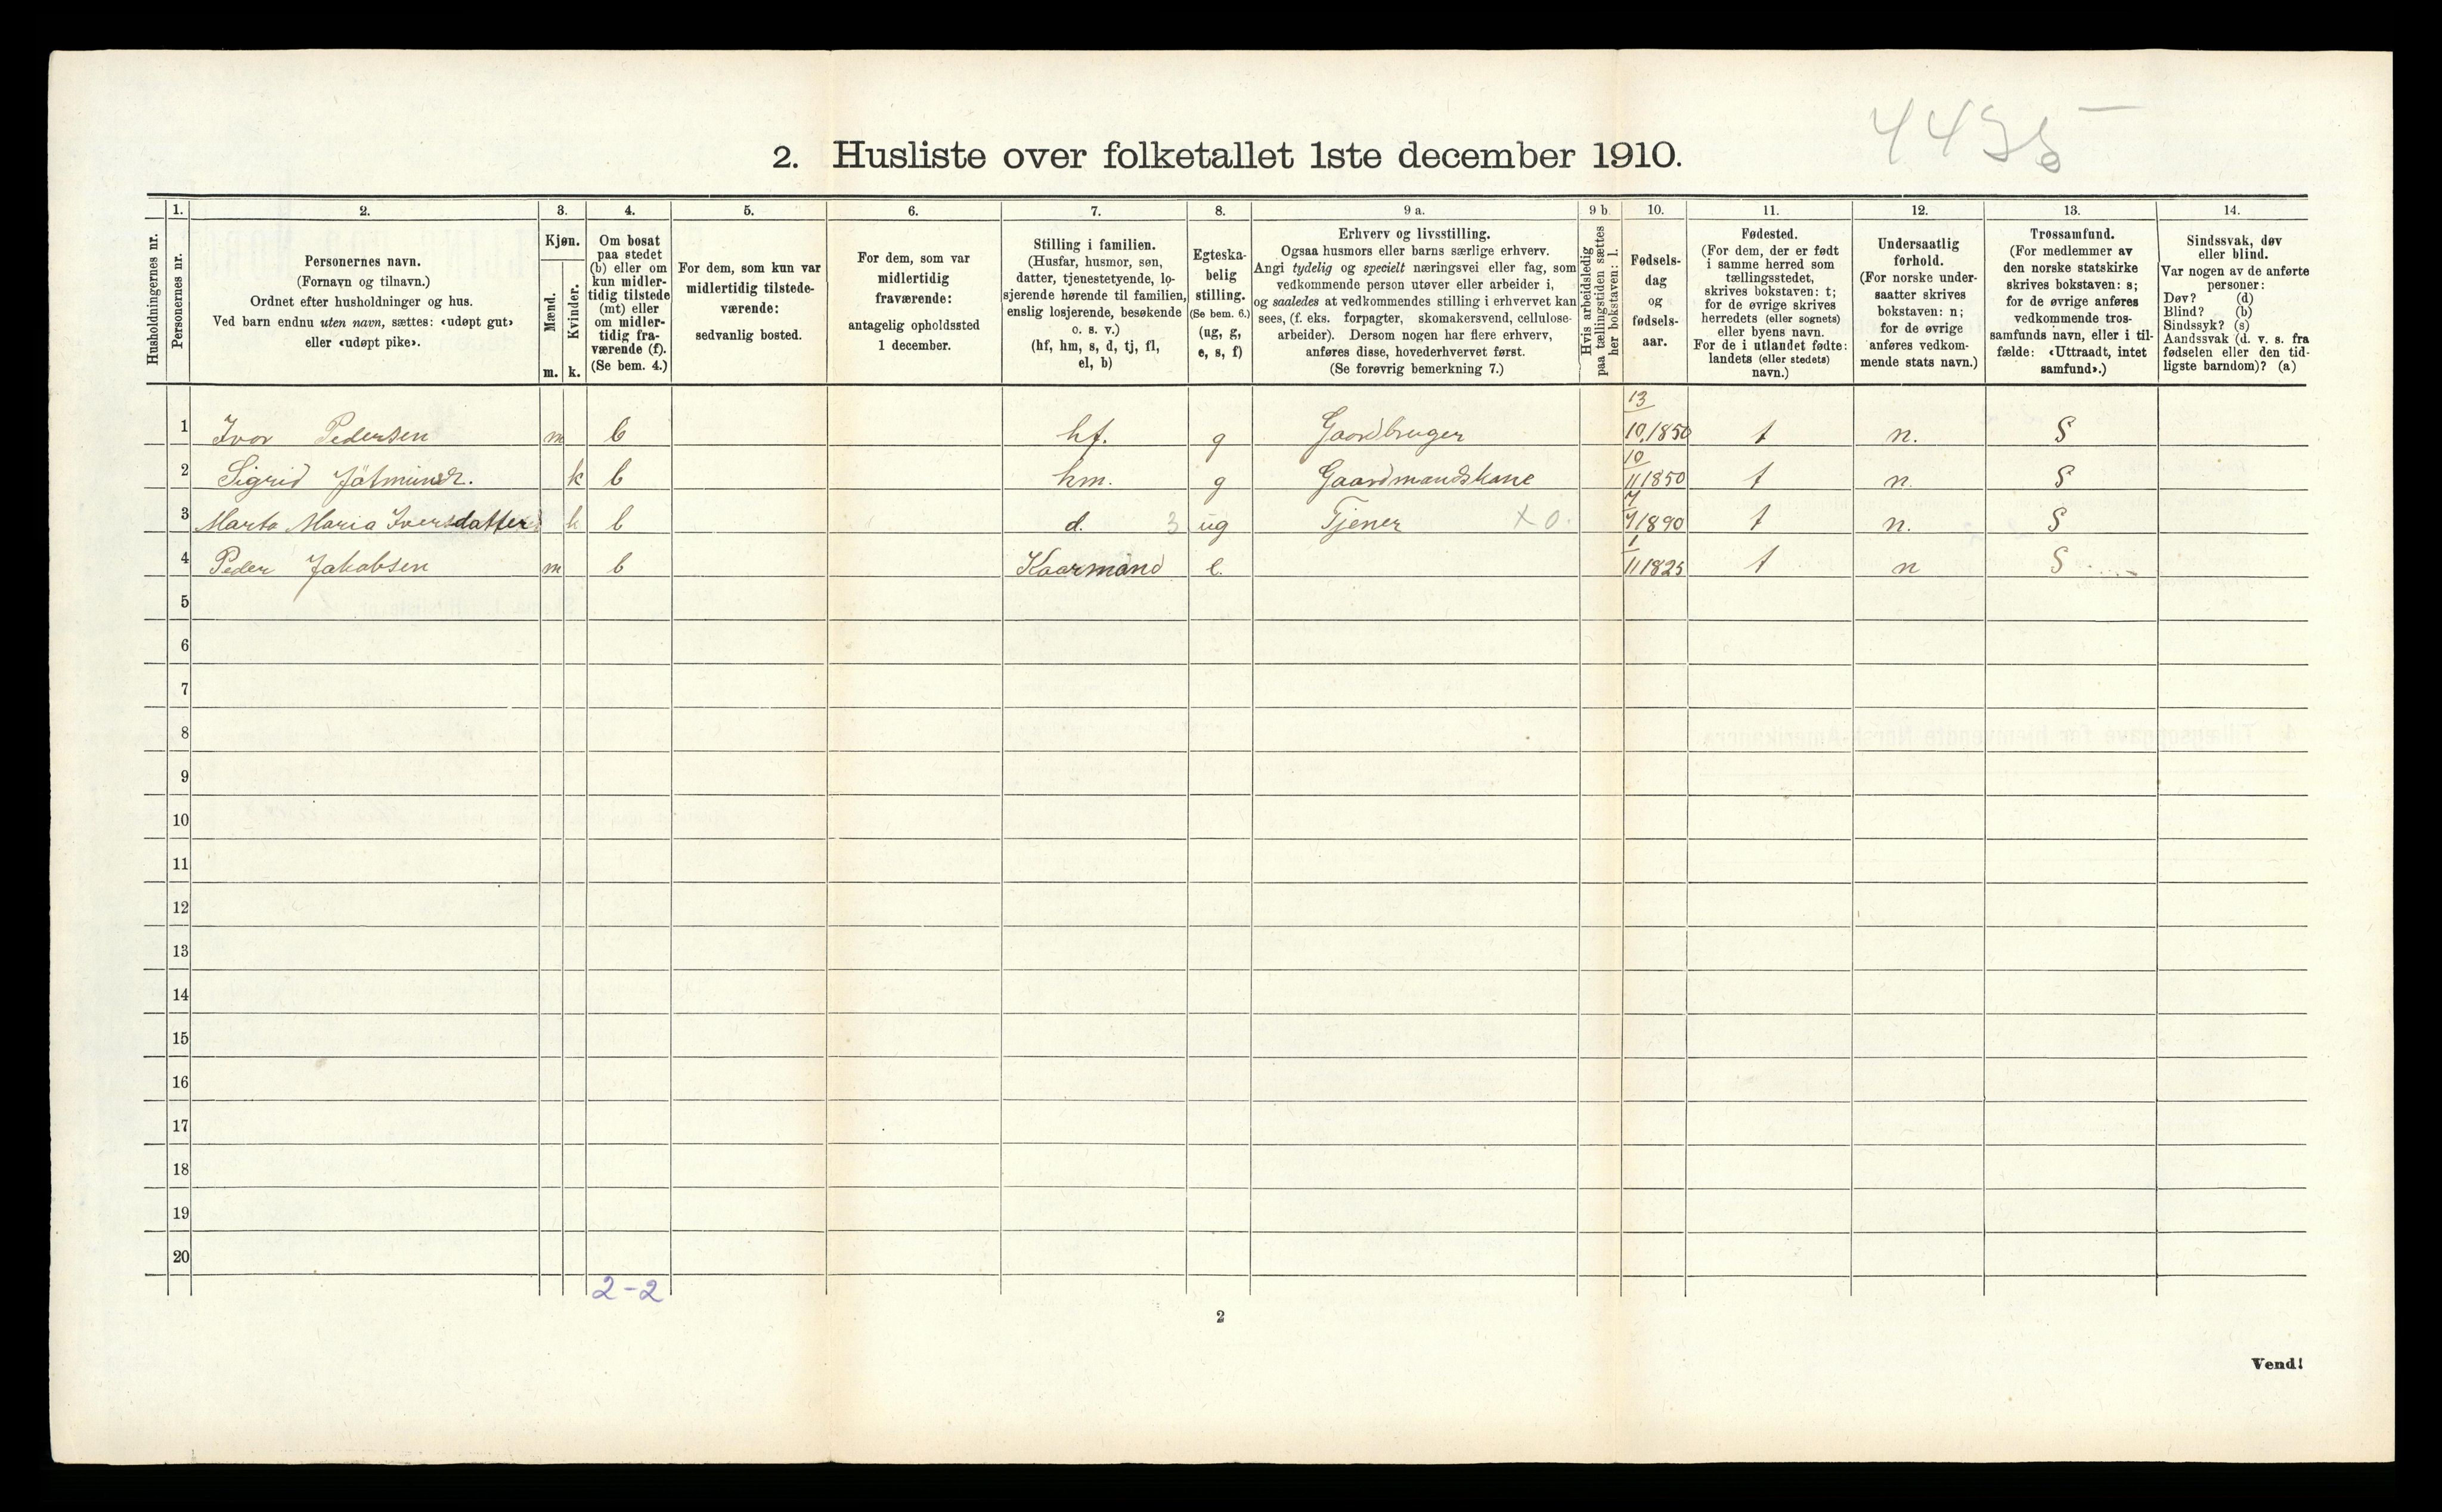 4435
2. Husliste over folketallet 1ste december 1910.
Husholdningernes nr.
1.
Personernes nr.
2.
Personernes navn.
(Fornavn og tilnavn.)
Ordnet efter husholdninger og hus.
Ved barn endnu uten navn, sættes: «udøpt gut»
eller «udøpt pike».
3.
Kjøn.
Mænd.
Kvinder.
m. k.
4.
Om bosat
paa stedet
(b) eller om
kun midler-
tidig tilstede
(mt) eller
om midler-
tidig fra-
værende (f).
(Se bem. 4.)
5.
For dem, som kun var
midlertidig tilstede-
værende:
sedvanlig bosted.
6.
For dem, som var
midlertidig
fraværende:
antagelig opholdssted
1 december.
7.
Stilling i familien.
(Husfar, husmor, søn,
datter, tjenestetyende, lo-
sjerende hørende til familien,
enslig losjerende, besøkende
o. s. v.)
(hf, hm, s, d, tj, fl,
el, b)
8.
Egteska-
belig
stilling.
(Se bem. 6.)
(ug, g,
e, s, f)
9 a.
Erhverv og livsstilling.
Ogsaa husmors eller barns særlige erhverv.
Angi tydelig og specielt næringsvei eller fag, som
vedkommende person utøver eller arbeider i,
og saaledes at vedkommendes stilling i erhvervet kan
sees, (f. eks. forpagter, skomakersvend, cellulose-
arbeider). Dersom nogen har flere erhverv,
anføres disse, hovederhvervet først.
(Se forøvrig bemerkning 7.)
9 b
Hvis arbeidsledig
paa tællingstiden sættes
her bokstaven: l.
10.
Fødsels-
dag
og
fødsels-
aar.
11.
Fødested.
(For dem, der er født
i samme herred som
tællingsstedet,
skrives bokstaven: t;
for de øvrige skrives
herredets (eller sognets)
eller byens navn.
For de i utlandet fødte:
landets (eller stedets)
navn.)
12.
Undersaatlig
forhold.
(For norske under-
saatter skrives
bokstaven: n;
for de øvrige
anføres vedkom-
mende stats navn.)
13.
Trossamfund.
(For medlemmer av
den norske statskirke
skrives bokstaven: s;
for de øvrige anføres
vedkommende tros-
samfunds navn, eller i til-
fælde: «Uttraadt, intet
samfund».)
14.
Sindssvak, døv
eller blind.
Var nogen av de anførte
personer:
Døv? (d)
Blind? (b)
Sindssyk? (s)
Aandssvak (d. v. s. fra
fødselen eller den tid-
ligste barndom)? (a)
1 Ivor Pedersen m b hf. g Gaardbruger 13/10 1850 t n. S
2 Sigrid k b hm. g Gaardmandskone 10/11 1850 t n. S
3 Marta Maria Iversdatter k b d. 3 ug Tjener X 0. 7/7 1890 t n. S
4 Peder Jakobsen m b Kaarmand e. 1/11 1825 t n S
5
6
7
8
9
10
11
12
13
14
15
16
17
18
19
20
2-2
2
Vend!